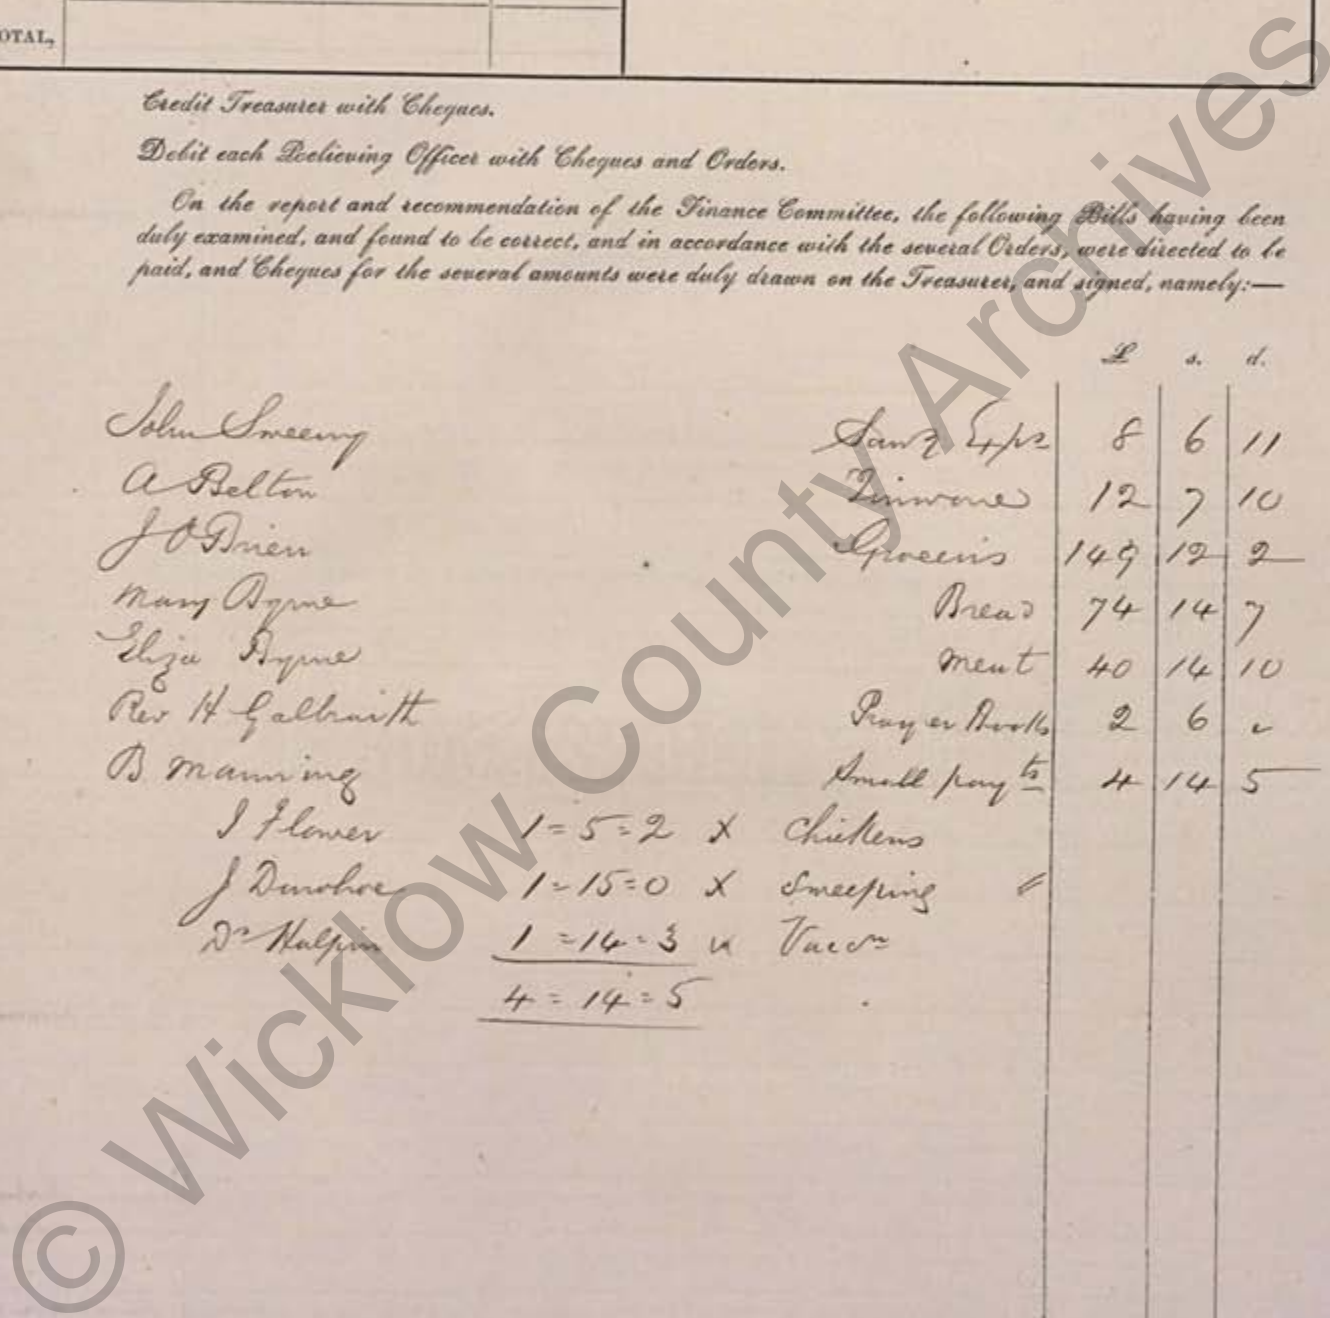 OTAL,
Credit Treasurer with Cheques.
Debit each Relieving Officer with Cheques and Orders.
On the report and recommendation of the Finance Committee, the following Bills having been
duly examined, and found to be correct, and in accordance with the several Orders, were directed to be
paid, and Cheques for the several amounts were duly drawn on the Treasurer, and signed, namely:—
£ s. d.
John Sweeny 8 6 11
A Belton Tinware 12 7 10
J O'Brien 149 12 2
Mary Byrne Bread 74 14 7
Eliza Byrne Meat 40 14 10
Rev H Galbraith Prayer Books 2 6
B Manning Small payts 4 14 5
J Flower 1=5=2 X Chickens
J Donohoe 1=15=0 X Sweeping
Dr Halpin 1=14=3 Vaccn
4=14=5
© Wicklow County Archives